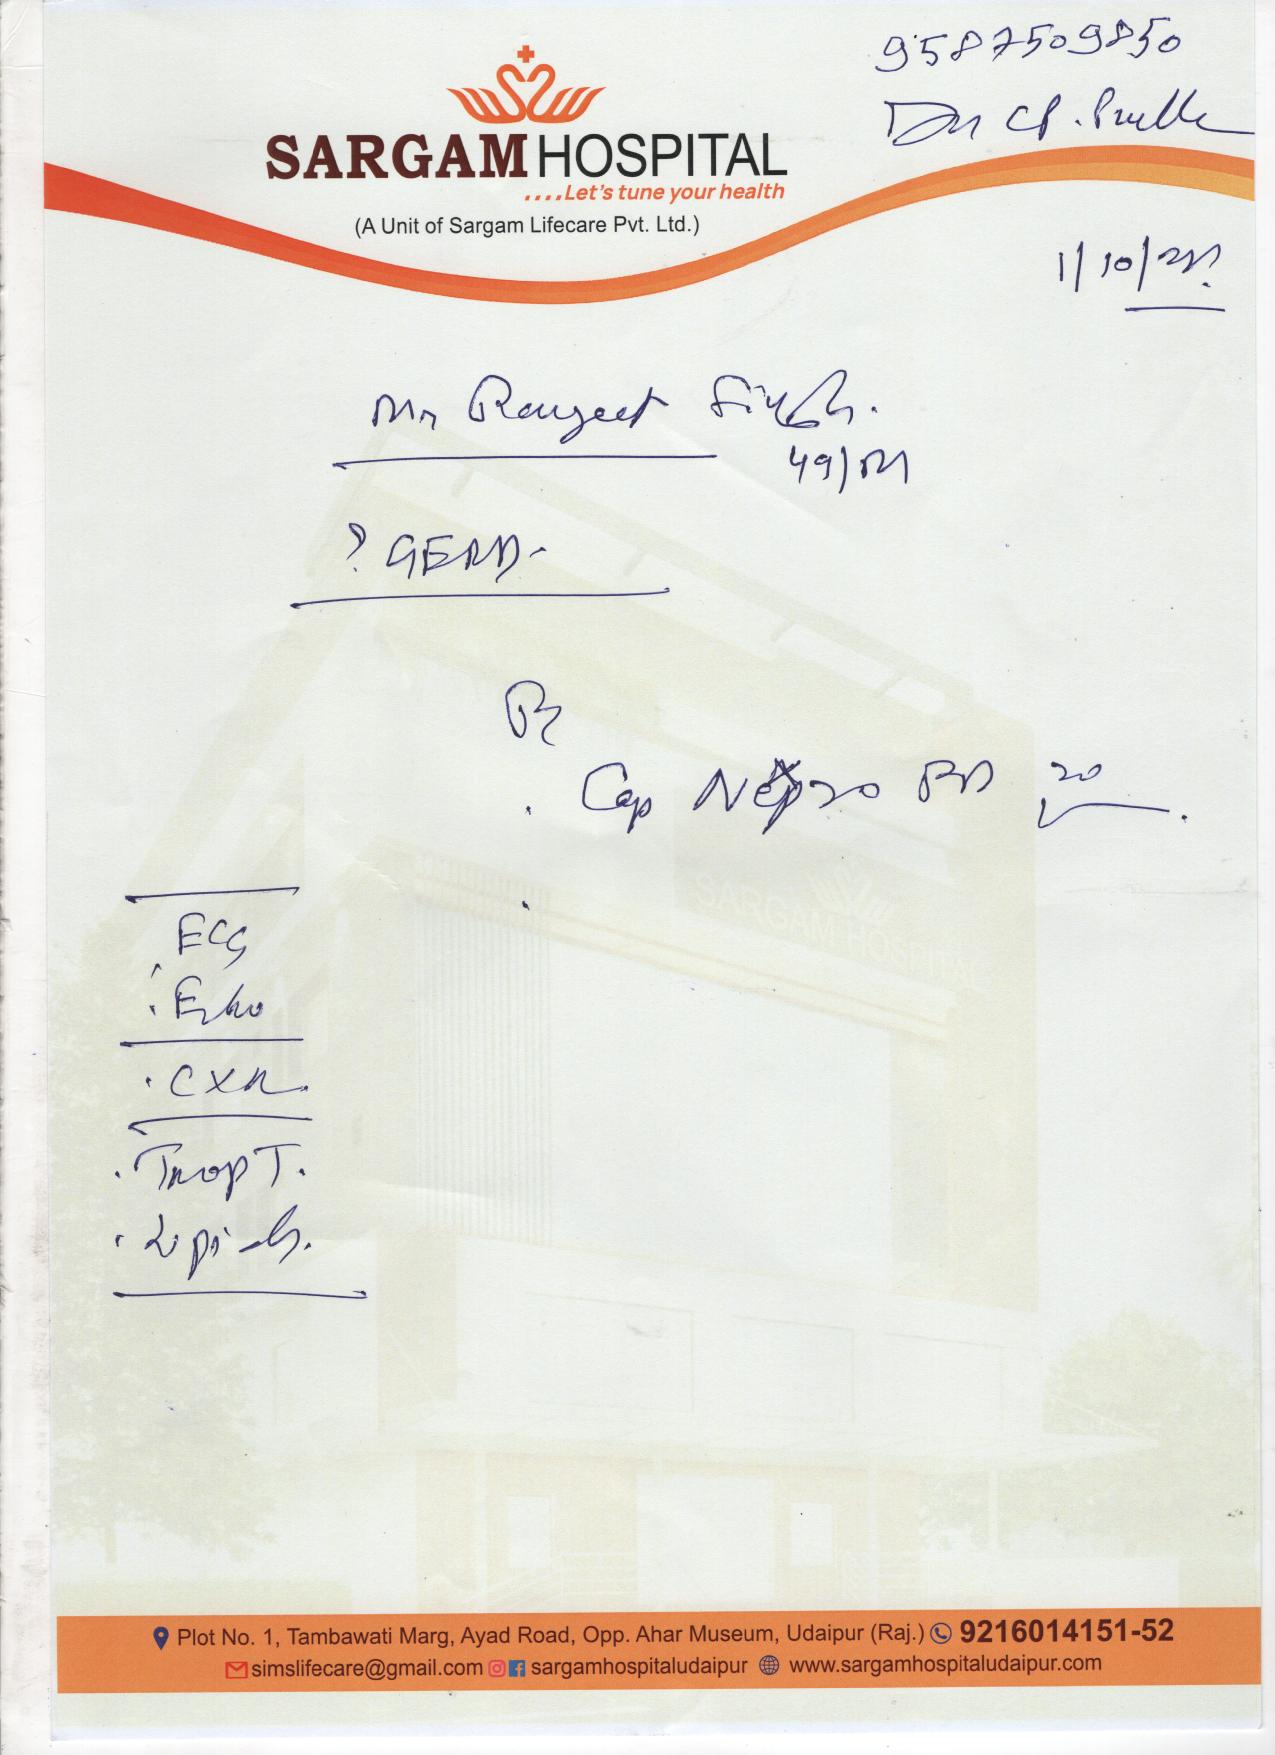 9587509850
Dr CP.
SARGAM HOSPITAL
....Let's tune your health
(A Unit of Sargam Lifecare Pvt. Ltd.)
1/10/
Mr Ranjeet Singh.
49/M
? GERD.
Rx
. Cap RD 20
SARGAM HOSPITAL
ECG
. Echo
. CXR.
. Trop T.
. Lipids.
Plot No. 1, Tambawati Marg, Ayad Road, Opp. Ahar Museum, Udaipur (Raj.) 9216014151-52
simslifecare@gmail.com sargamhospitaludaipur www.sargamhospitaludaipur.com